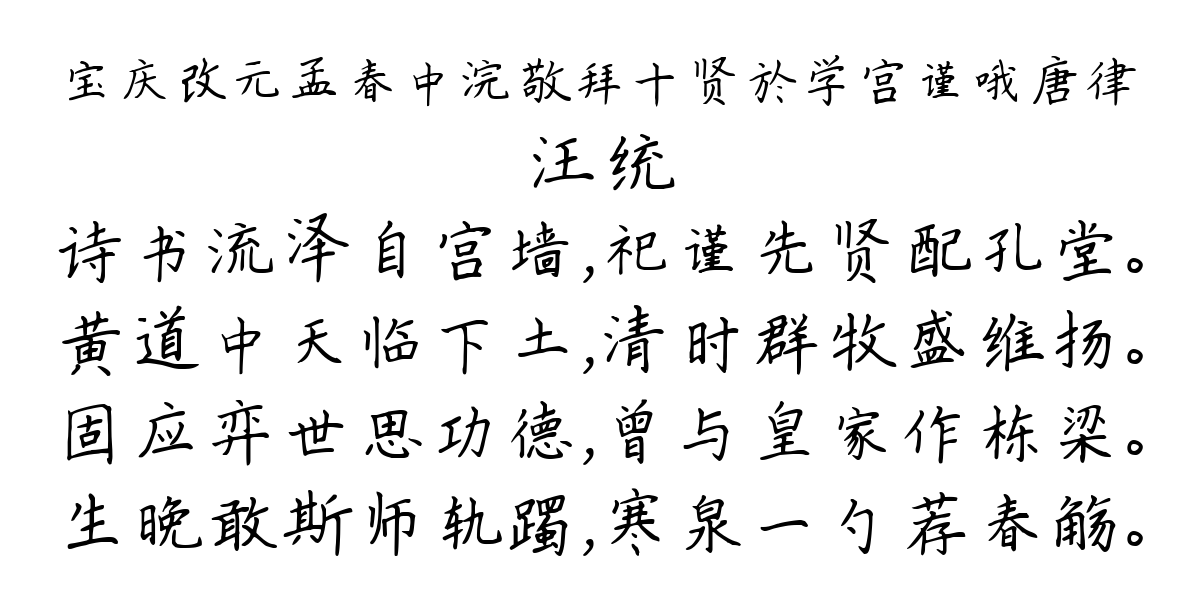 宝庆改元孟春中浣敬拜十贤於学宫谨哦唐律
汪统
诗书流泽自宫墙,祀谨先贤配孔堂。
黄道中天临下土,清时群牧盛维扬。
固应弈世思功德,曾与皇家作栋梁。
生晚敢斯师轨躅,寒泉一勺荐春觞。